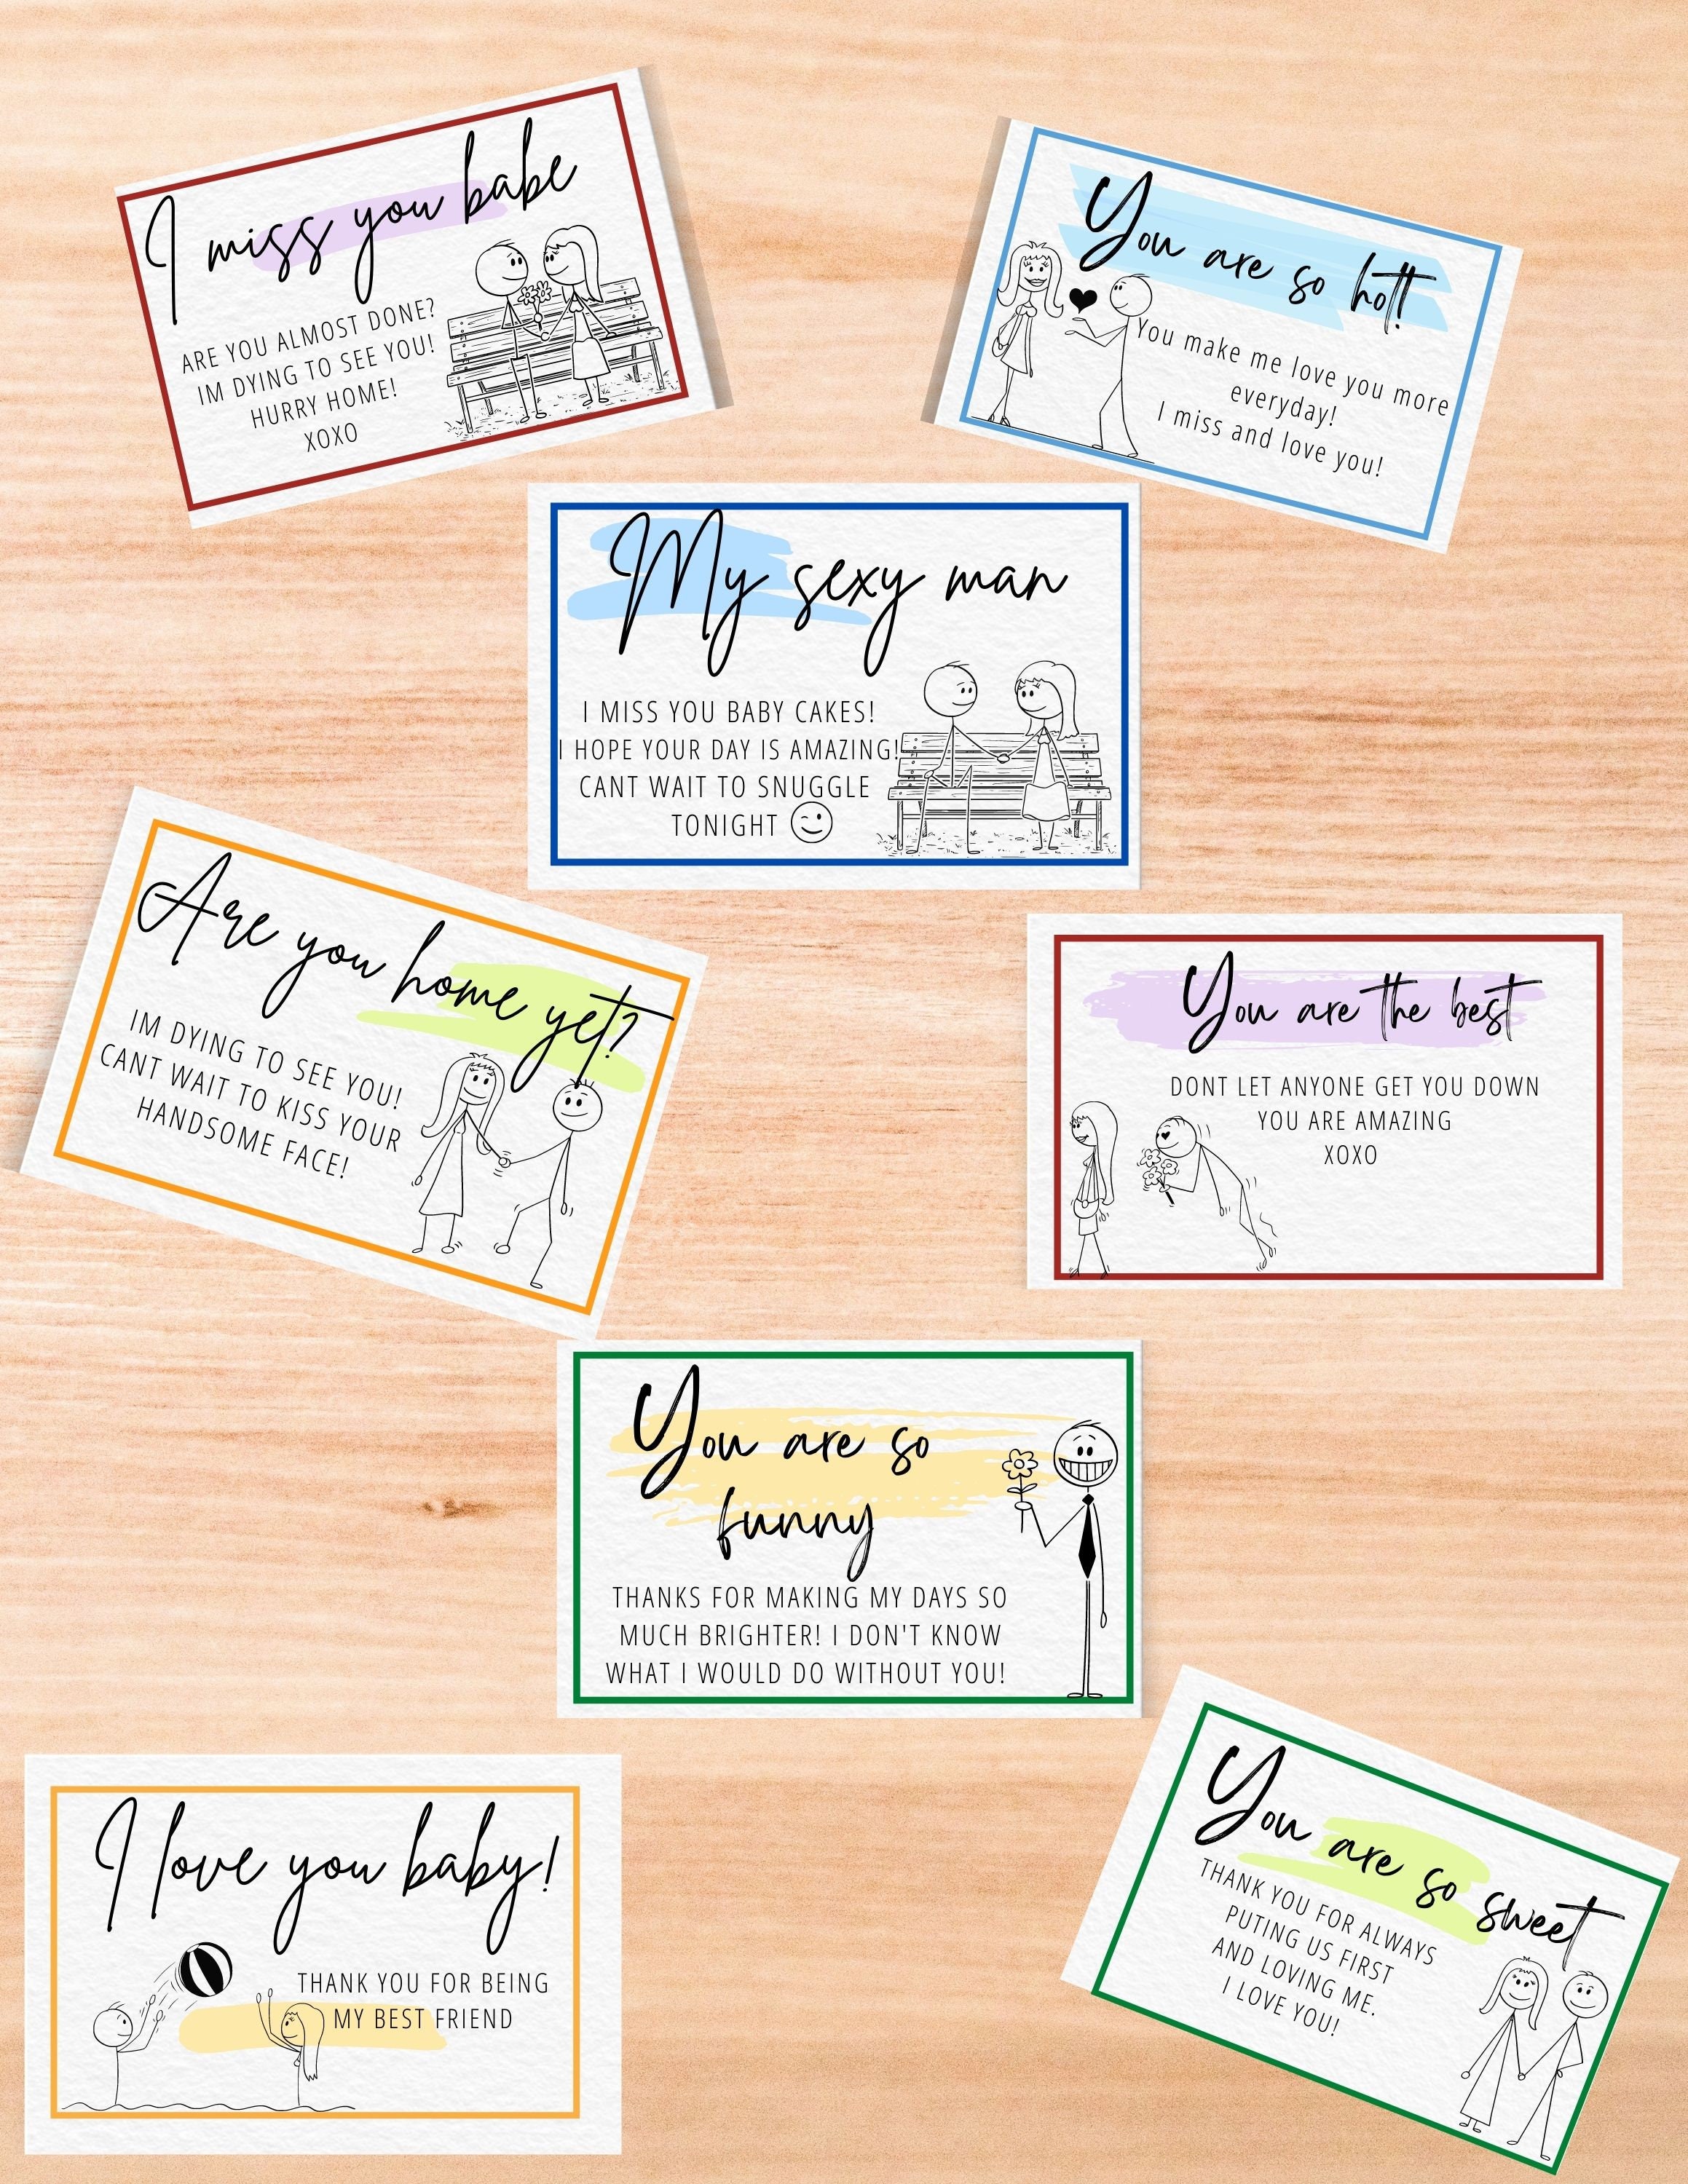 I miss you babe
ARE YOU ALMOST DONE?
IM DYING TO SEE YOU!
HURRY HOME!
XOXO
You are so hott!
You make me love you more
everyday!
I miss and love you!
My sexy man
I MISS YOU BABY CAKES!
I HOPE YOUR DAY IS AMAZING!
CANT WAIT TO SNUGGLE
TONIGHT
Are you home yet?
IM DYING TO SEE YOU!
CANT WAIT TO KISS YOUR
HANDSOME FACE!
You are the best
DONT LET ANYONE GET YOU DOWN
YOU ARE AMAZING
XOXO
You are so
funny
THANKS FOR MAKING MY DAYS SO
MUCH BRIGHTER! I DON'T KNOW
WHAT I WOULD DO WITHOUT YOU!
I love you baby!
THANK YOU FOR BEING
MY BEST FRIEND
You are so sweet
THANK YOU FOR ALWAYS
PUTING US FIRST
AND LOVING ME.
I LOVE YOU!